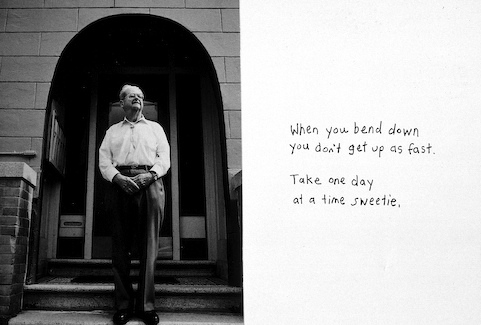 When you bend down
you don't get up as fast.
Take one day
at a time sweetie.